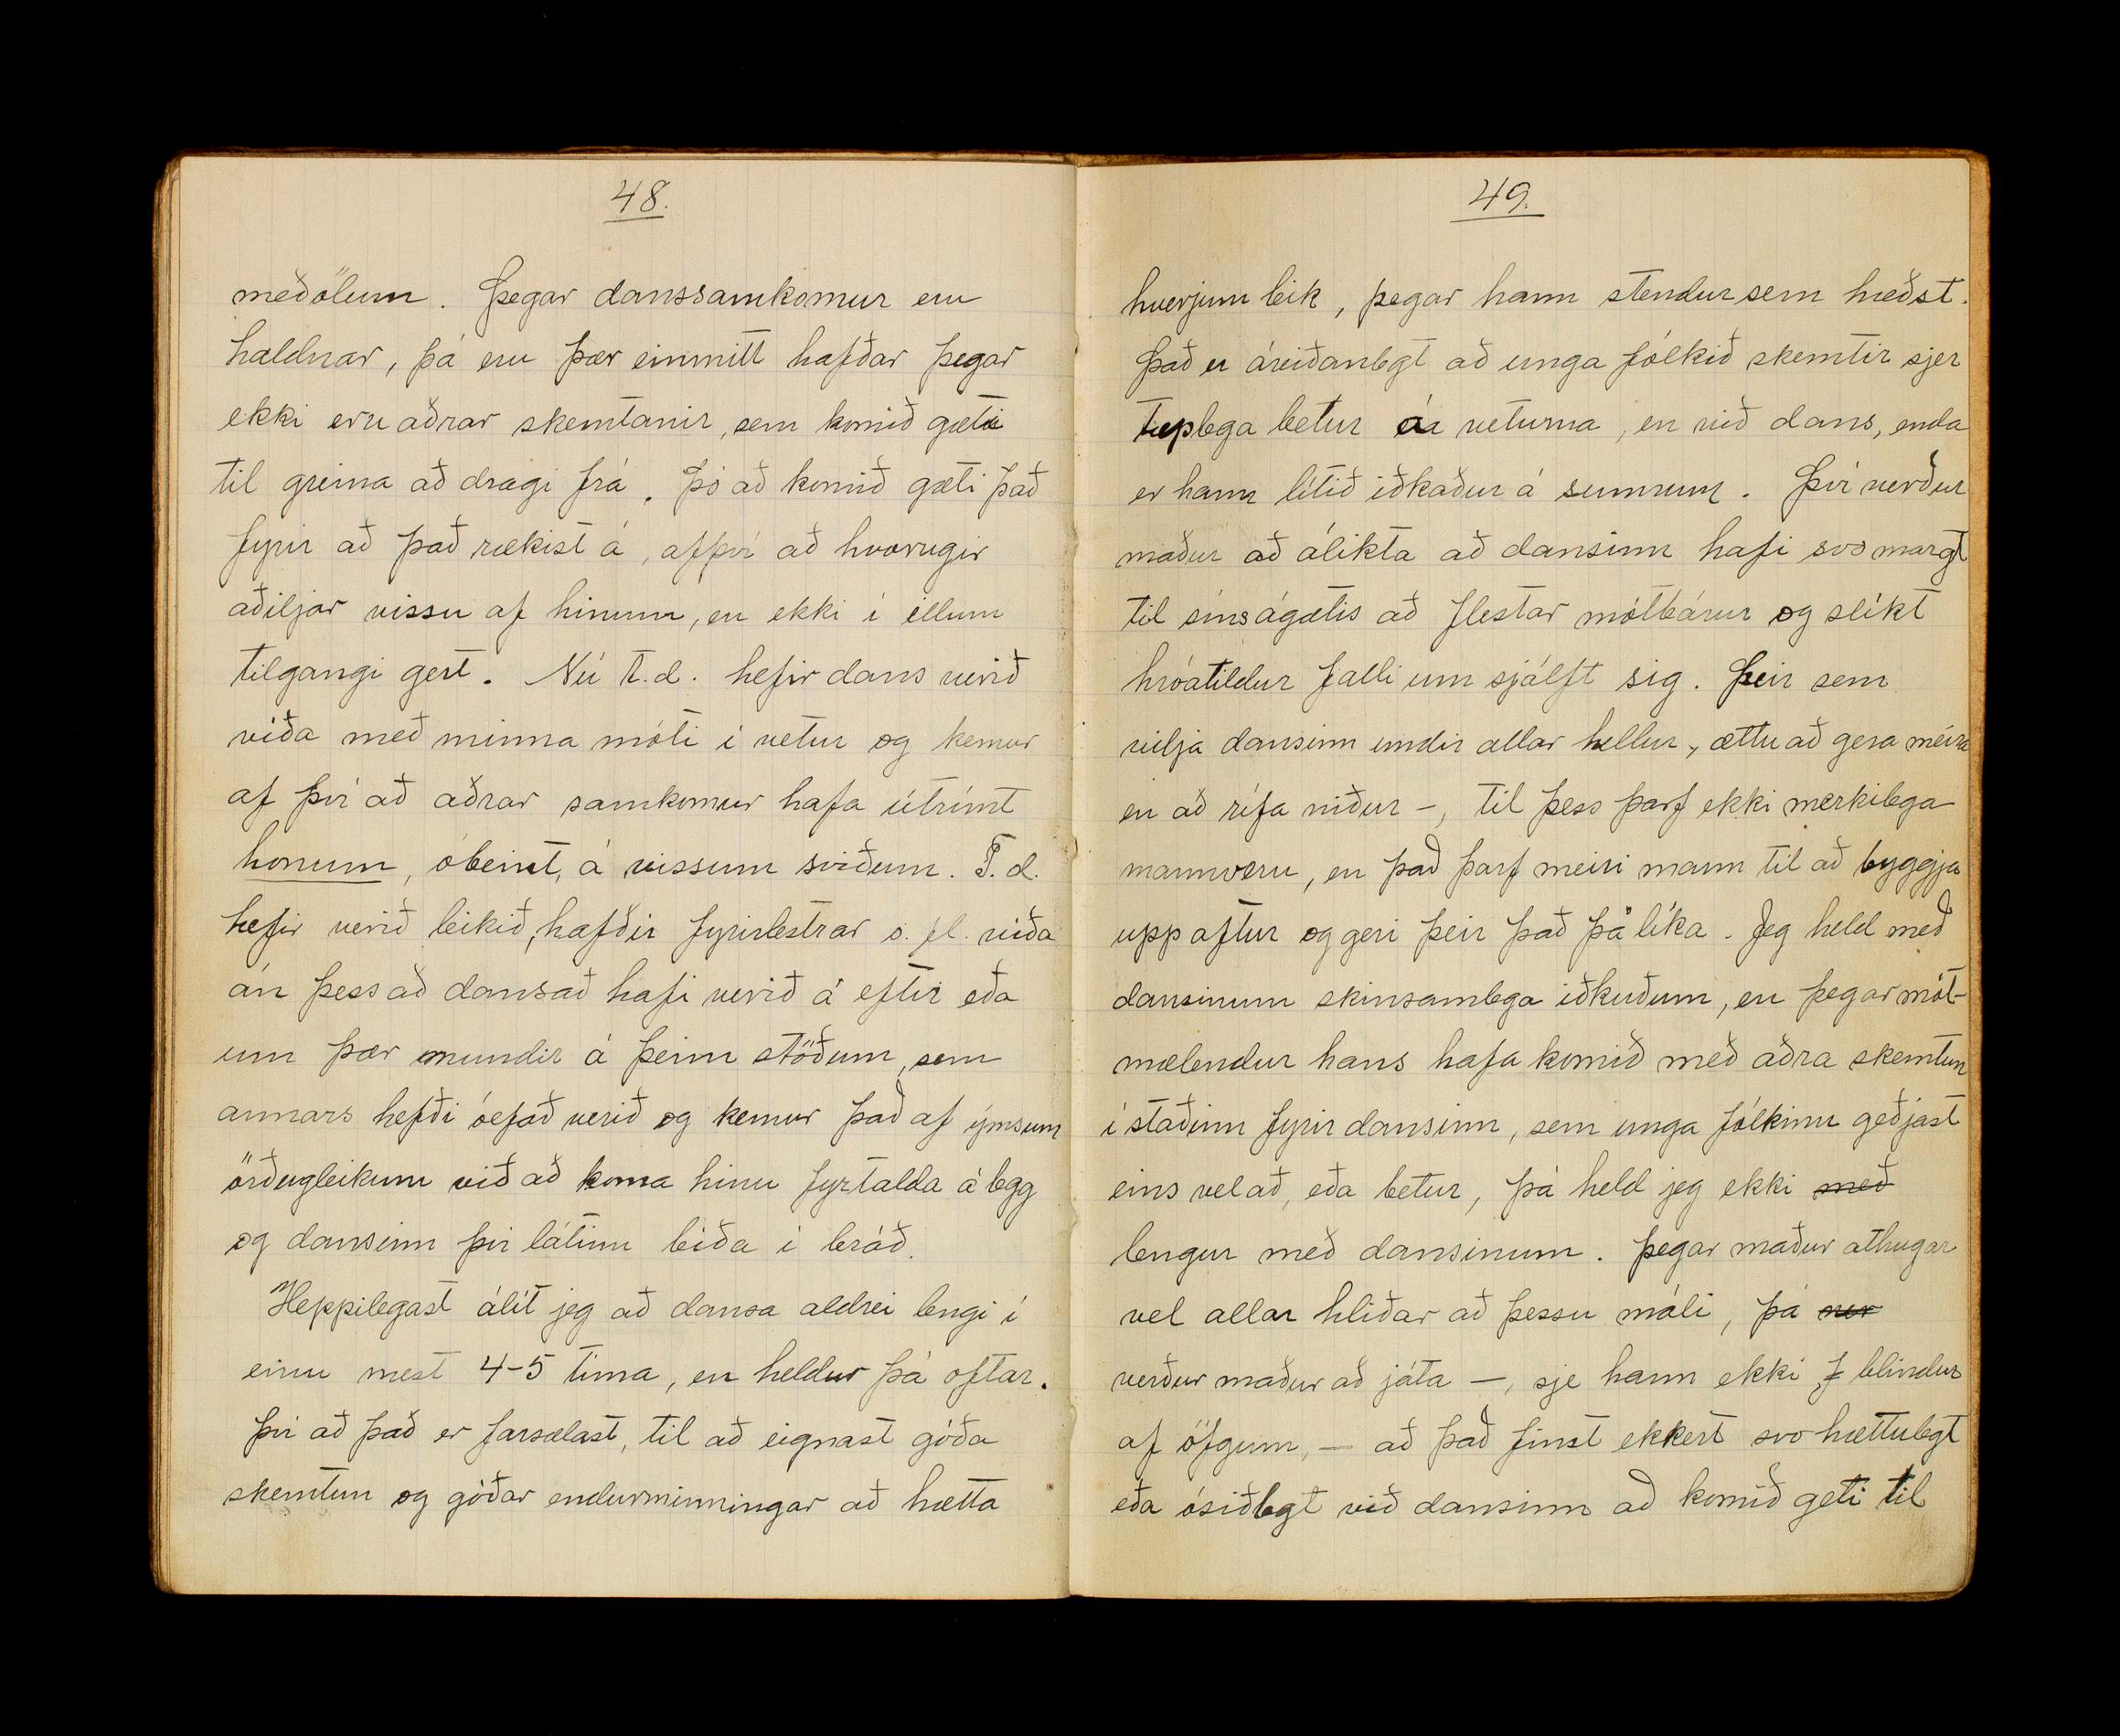 48.
meðölum. Þegar danssamkomur eru
haldnar, þá eru þær einmitt hafðar þegar
ekki eru aðrar skemtanir, sem komið gæti
til greina að dragi frá. Þó að komið gæti það
fyrir að það rækist á, afþví að hvorugir
aðiljar vissu af hinum, en ekki í illum
tilgangi gert. Nú t.d. hefir dans verið
víða með minna móti í vetur og kemur
af því að aðrar samkomur hafa útrímt
honum, óbeint, á vissum sviðum. T.d.
hefir verið leikið, hafðir fyrirlestrar o. fl. víða
án þess að dansað hafi verið á eftir eða
um þær mundir á þeim stöðum, sem
annars hefði óefað verið og kemur það af ýmsum
örðugleikum við að koma hinu fyrtalda á legg
og dansinn þir látinn bíða í bráð.
Heppilegast álít jeg að dansa aldrei lengi í
einu mest 4-5 tíma, en heldur þá oftar.
Því að það er farsælast, til að eignast góða
skemtun og góðar endurminningar að hætta
49.
hverjum leik, þegar hann stendur sem hæðst.
Það er áreiðanlegt að unga fólkið skemtir sjer
tæplega betur á veturna, en við dans, enda
er hann lítið iðkaður á sumrum. Því verður
maður að álikta að dansinn hafi svo margt
til síns ágætis að flestar mótbárur og slíkt
hróatildur falli um sjálft sig. Þeir sem
vilja dansinn undir allar hellur, ættu að gera meira
en að rífa niður -, til þess þarf ekki merkilega
mannveru, en það þarf meiri mann til að byggja
upp aftur og geri þeir það þá líka. Jeg held með
dansinum skinsamlega iðkuðum, en þegar mót-
mælendur hans hafa komið með aðra skemtun
í staðinn fyrir dansinn, sem unga fólkinu geðjast
eins vel að, eða betur, þá held jeg ekki með
lengur með dansinum. Þegar maður athugar
vel allar hliðar að þessu máli, þá ver
verður maður að játa -, sje hann ekki f blindur
af öfgum, - að það finst ekkert svo hættulegt
eða ósiðlegt við dansinn að komið geti til